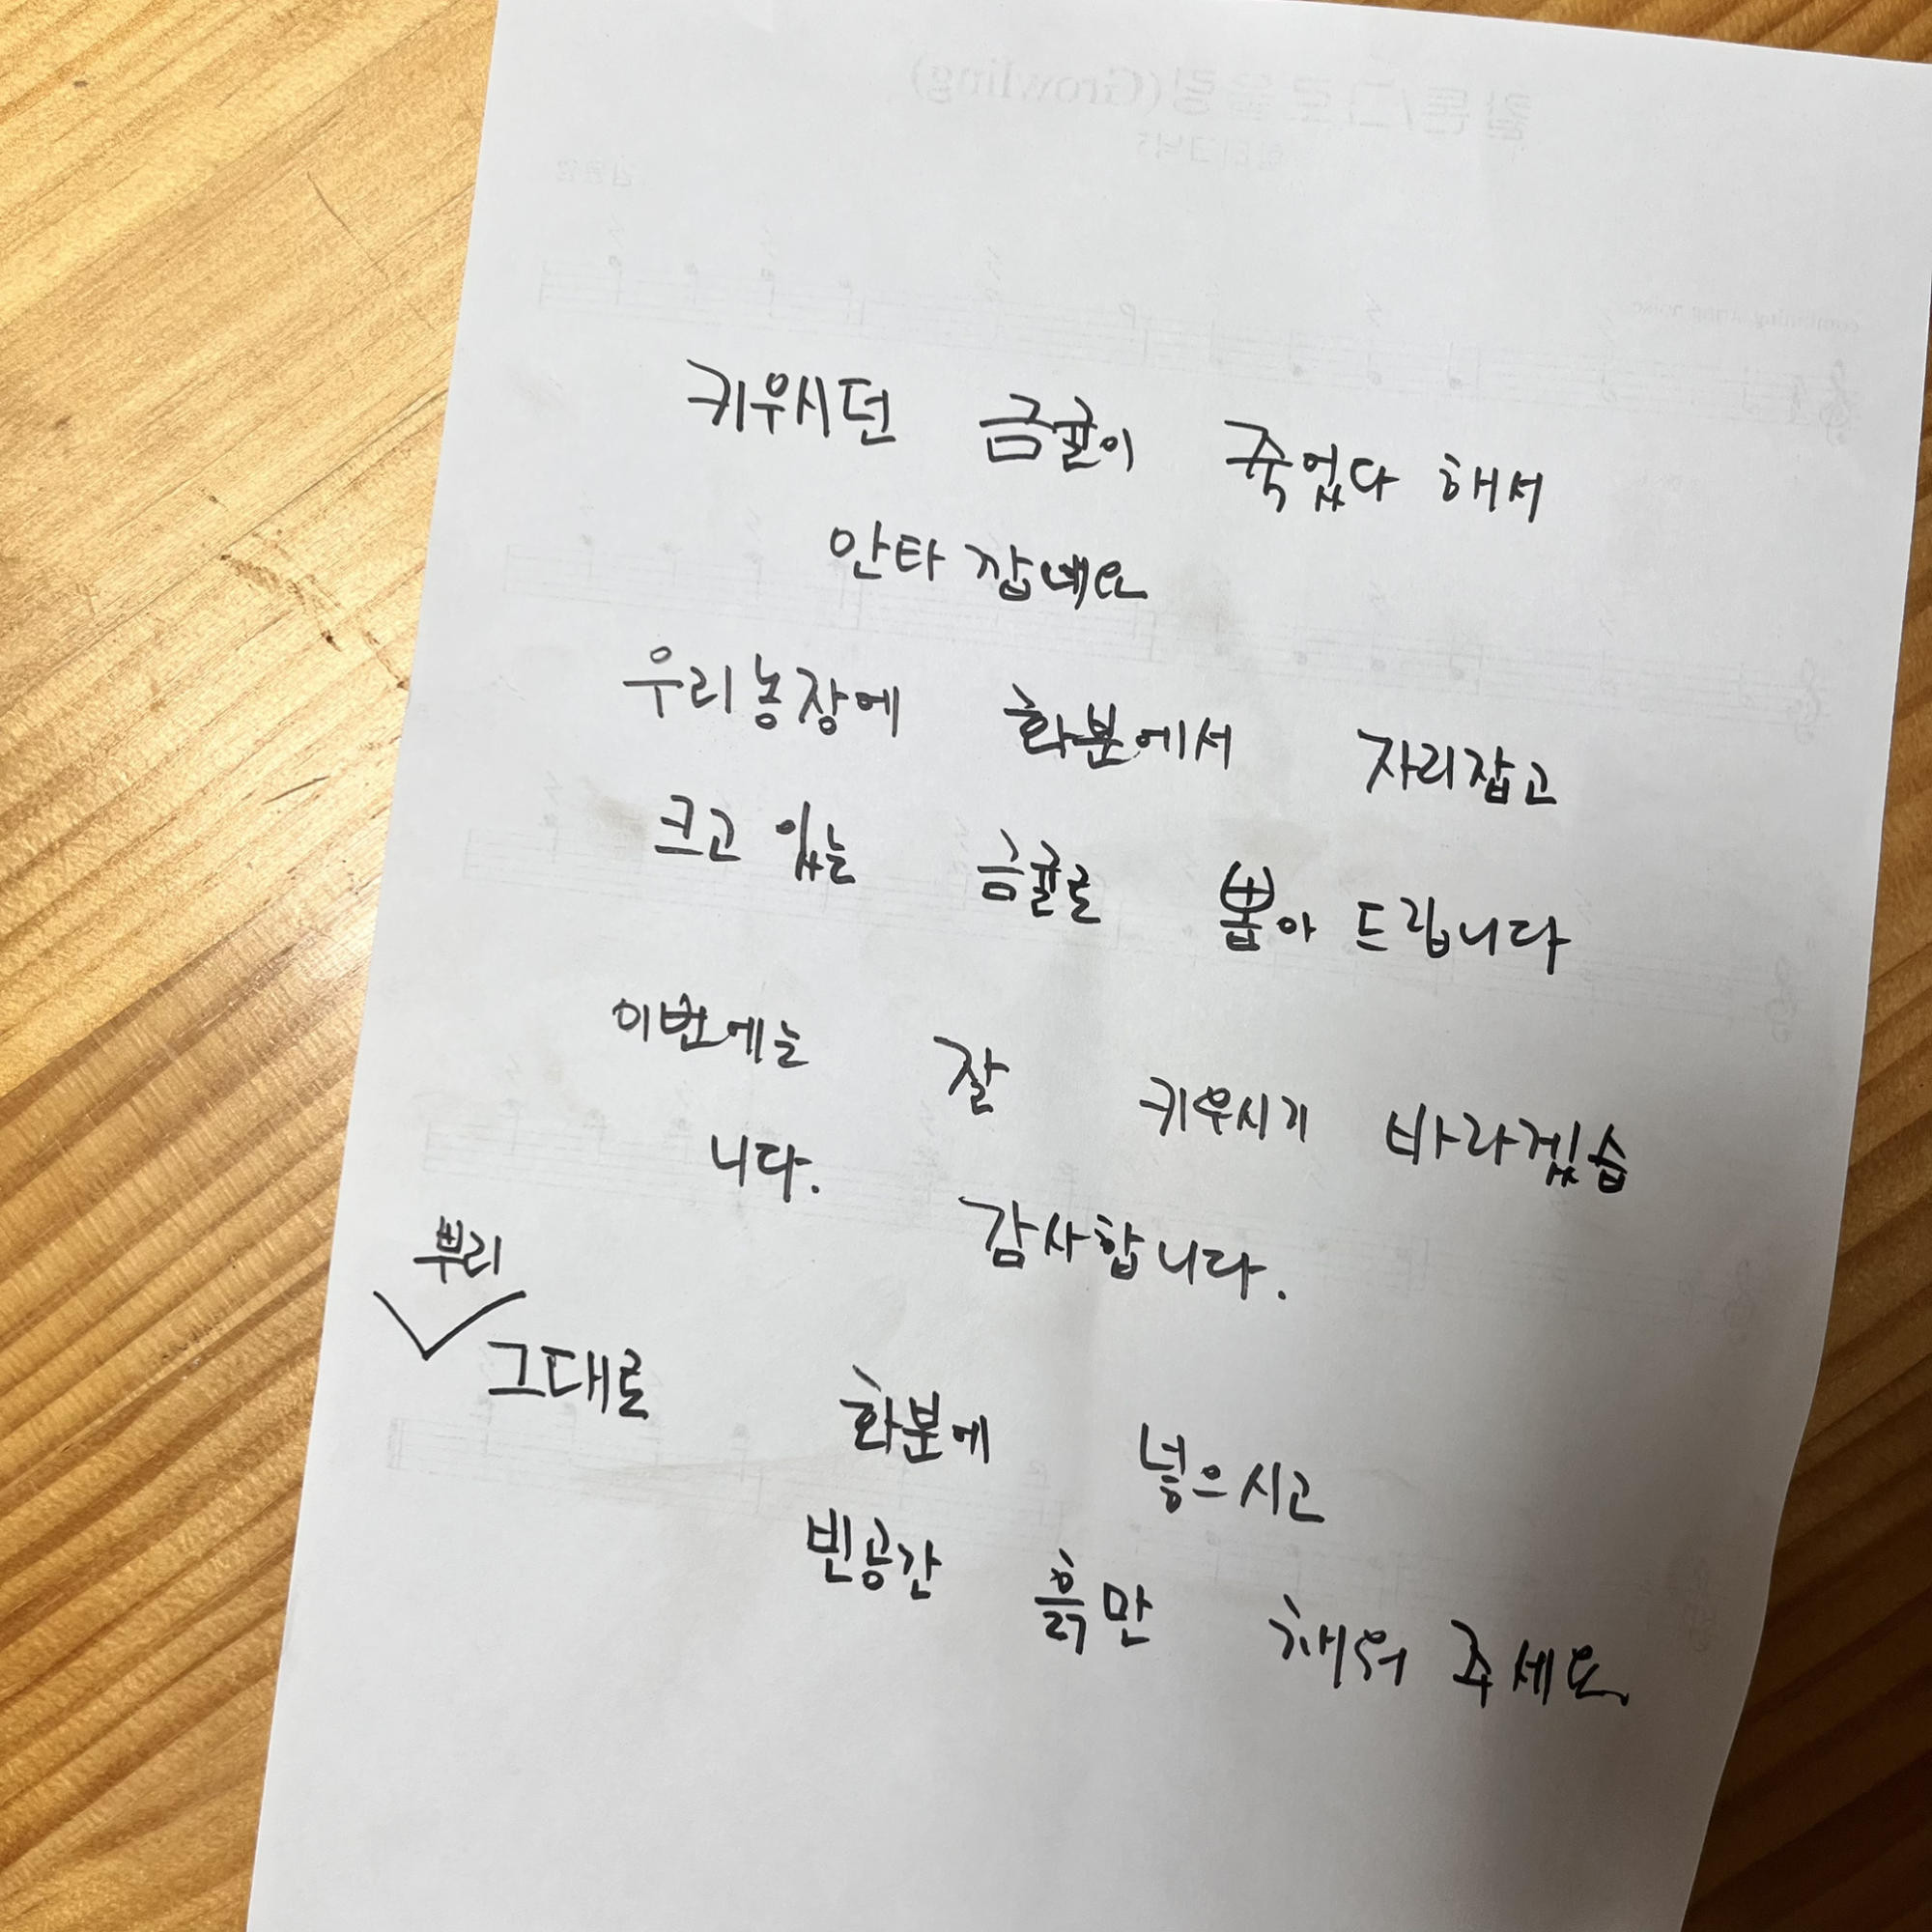 키우시던 금귤이 죽었다 해서
안타 깝네요
우리농장에 화분에서 자리잡고
크고 있는 금귤로 뽑아 드립니다
이번에는 잘 키우시기 바라겠습
니다. 감사합니다.
뿌리
그대로 화분에 넣으시고
빈공간 흙만 채워 주세요
(Growling)